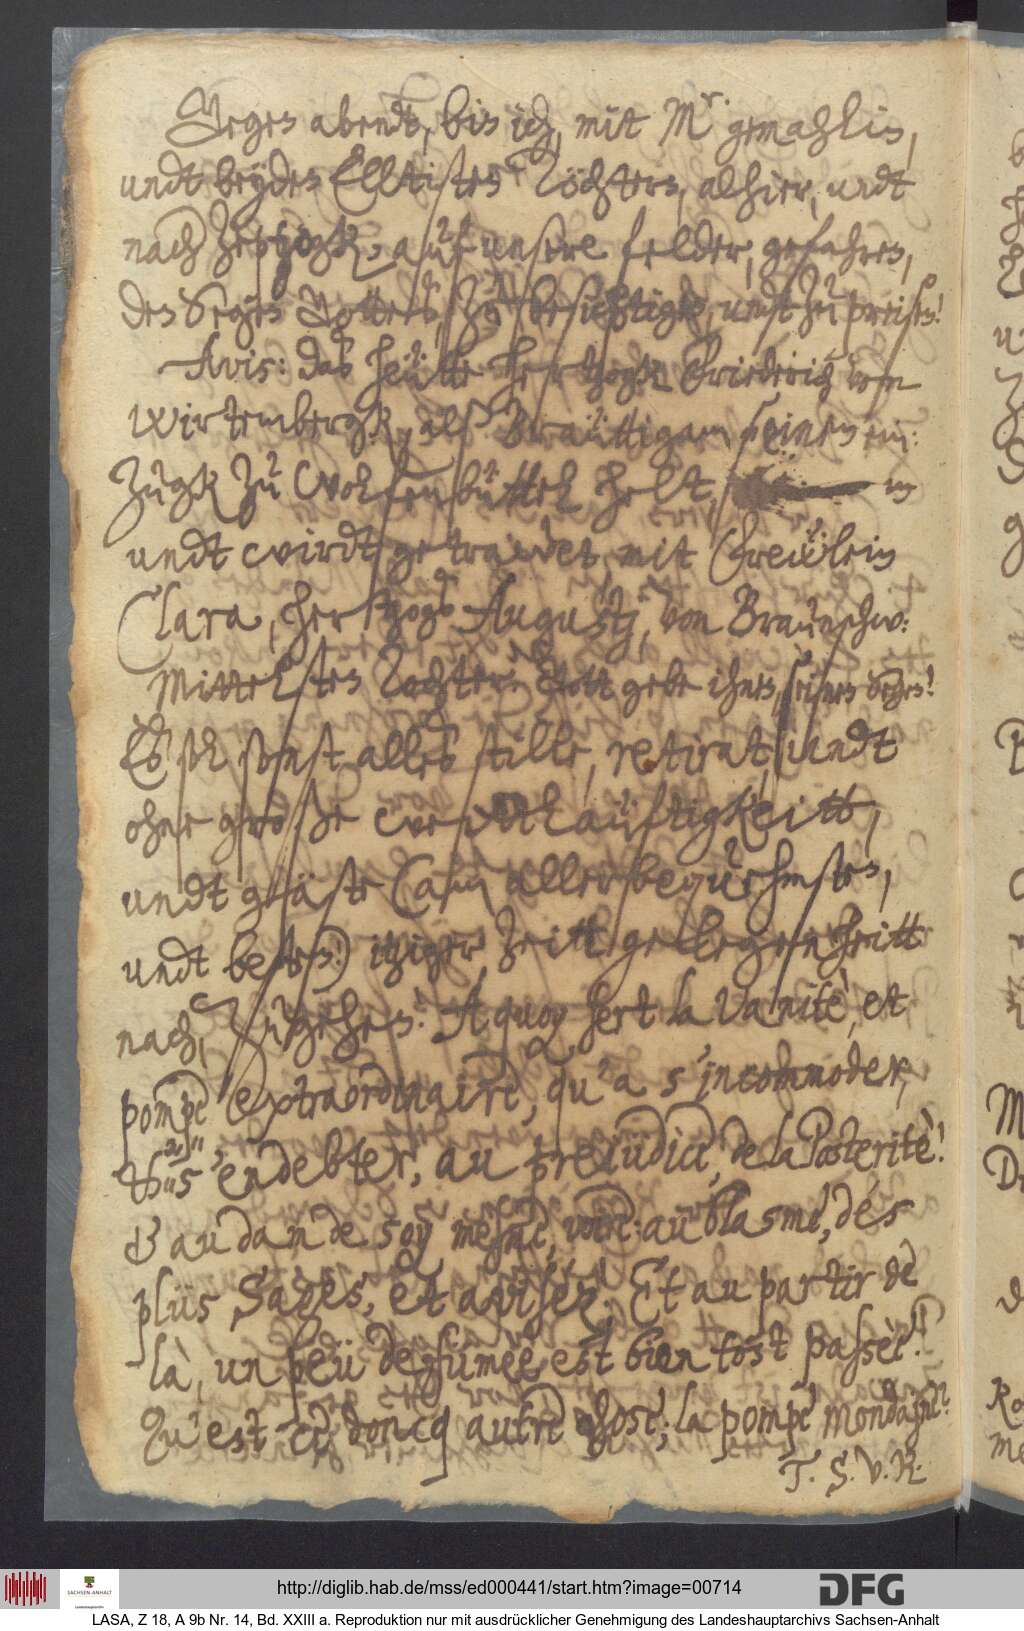 Gegen abendt, bin ich, mit Mr. gemahlin,
undt beyden Elltisten Töchtern, alhier, undt
nach Zeptzigk, auf unsere felder, gefahren,
den Segen Gottes, zu besichtigen, undt zu preisen!
Avis: daß heütte Hertzogk Friederich von
Wirtembergk, alß Braüttigam seinen ein:
Zugk zu Wolfenbüttel helt, in
undt wirdt getrawet, mit Frewlein
Clara, Hertzogs Augustj, von Braunschw:
Mittelsten Tochter. Gott gebe ihnen, seinen Segen!
Es sol sonst alles stille, retirat, undt
ohne große weitlaüftigkeitt,
undt gäste (am allerbequehmsten,
undt besten) itziger Zeitt gelegenheitt
nach, Zugehen. A quoy sert la vanitè, et
pompe extraordinaire, qu'a s'incommoder,
& s'endebter, au prejudice, de la Posteritè!
& au dam de soy mesme, voire: au blasme, des
plus Sages, et avisèz. Et au partir de
là, un peu de fumèe est bien tost passèe!
Qu'est-ce doncq autre chose, la pompe mondaine?
T. S. V. R.
http://diglib.hab.de/mss/ed000441/start.htm?image=00714
SACHSEN-ANHALT
DFG
LASA, Z 18, A 9b Nr. 14, Bd. XXIII a. Reproduktion nur mit ausdrücklicher Genehmigung des Landeshauptarchivs Sachsen-Anhalt